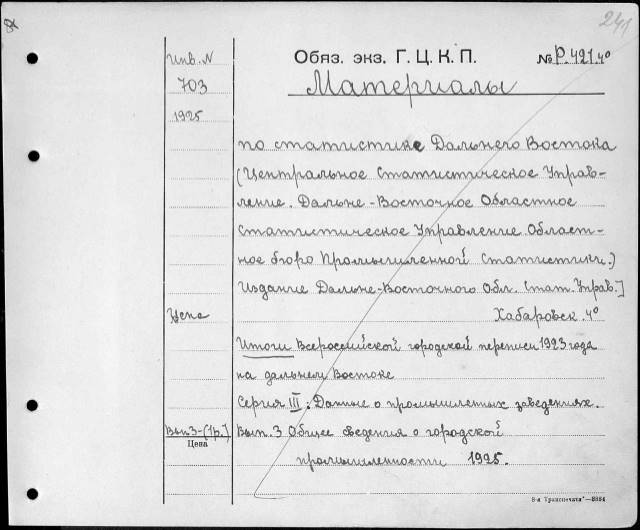 241
Инв. N
Обяз. экз. Г. Ц. К. П.
№ Р.421.4º
703
Материалы
1925
по статистике Дальнего Востока
(Центральное Статистическое Управ-
ление. Дальне-Восточное Областное
Статистическое Управление Област-
ное бюро Промышленной Статистики.)
Издание Дальне-Восточного Обл. Стат. Управ.]
Цена
Хабаровск. 4º
Итоги Всероссийской городской переписи 1923 года
на дальнем Востоке
Серия III: Данные о промышленых заведениях.
Вып. 3-(1р.]
Вып. 3 Общее сведения о городской
Цена
промышленности 1925.
8-я „Транспечати"—8884